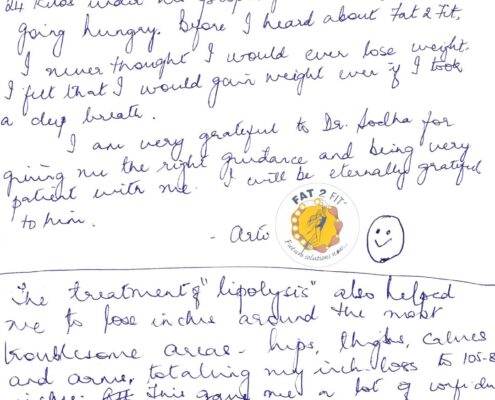 24 Kilos under his
going hungry. Before I heard about Fat 2 Fit,
I never thought I would ever lose weight.
I felt that I would gain weight even if I took
a deep breath.
I am very grateful to Dr. Sodha for
giving me the right guidance and being very
patient with me. I will be eternally grateful
to him.
- Arti
FAT 2 FIT
The treatment of "lipolysis" also helped
me to lose inches around the most
troublesome areas- hips, thighs, calves
and arms, totaling my inch-loss to 105-8
inches. This gave me a lot of confiden